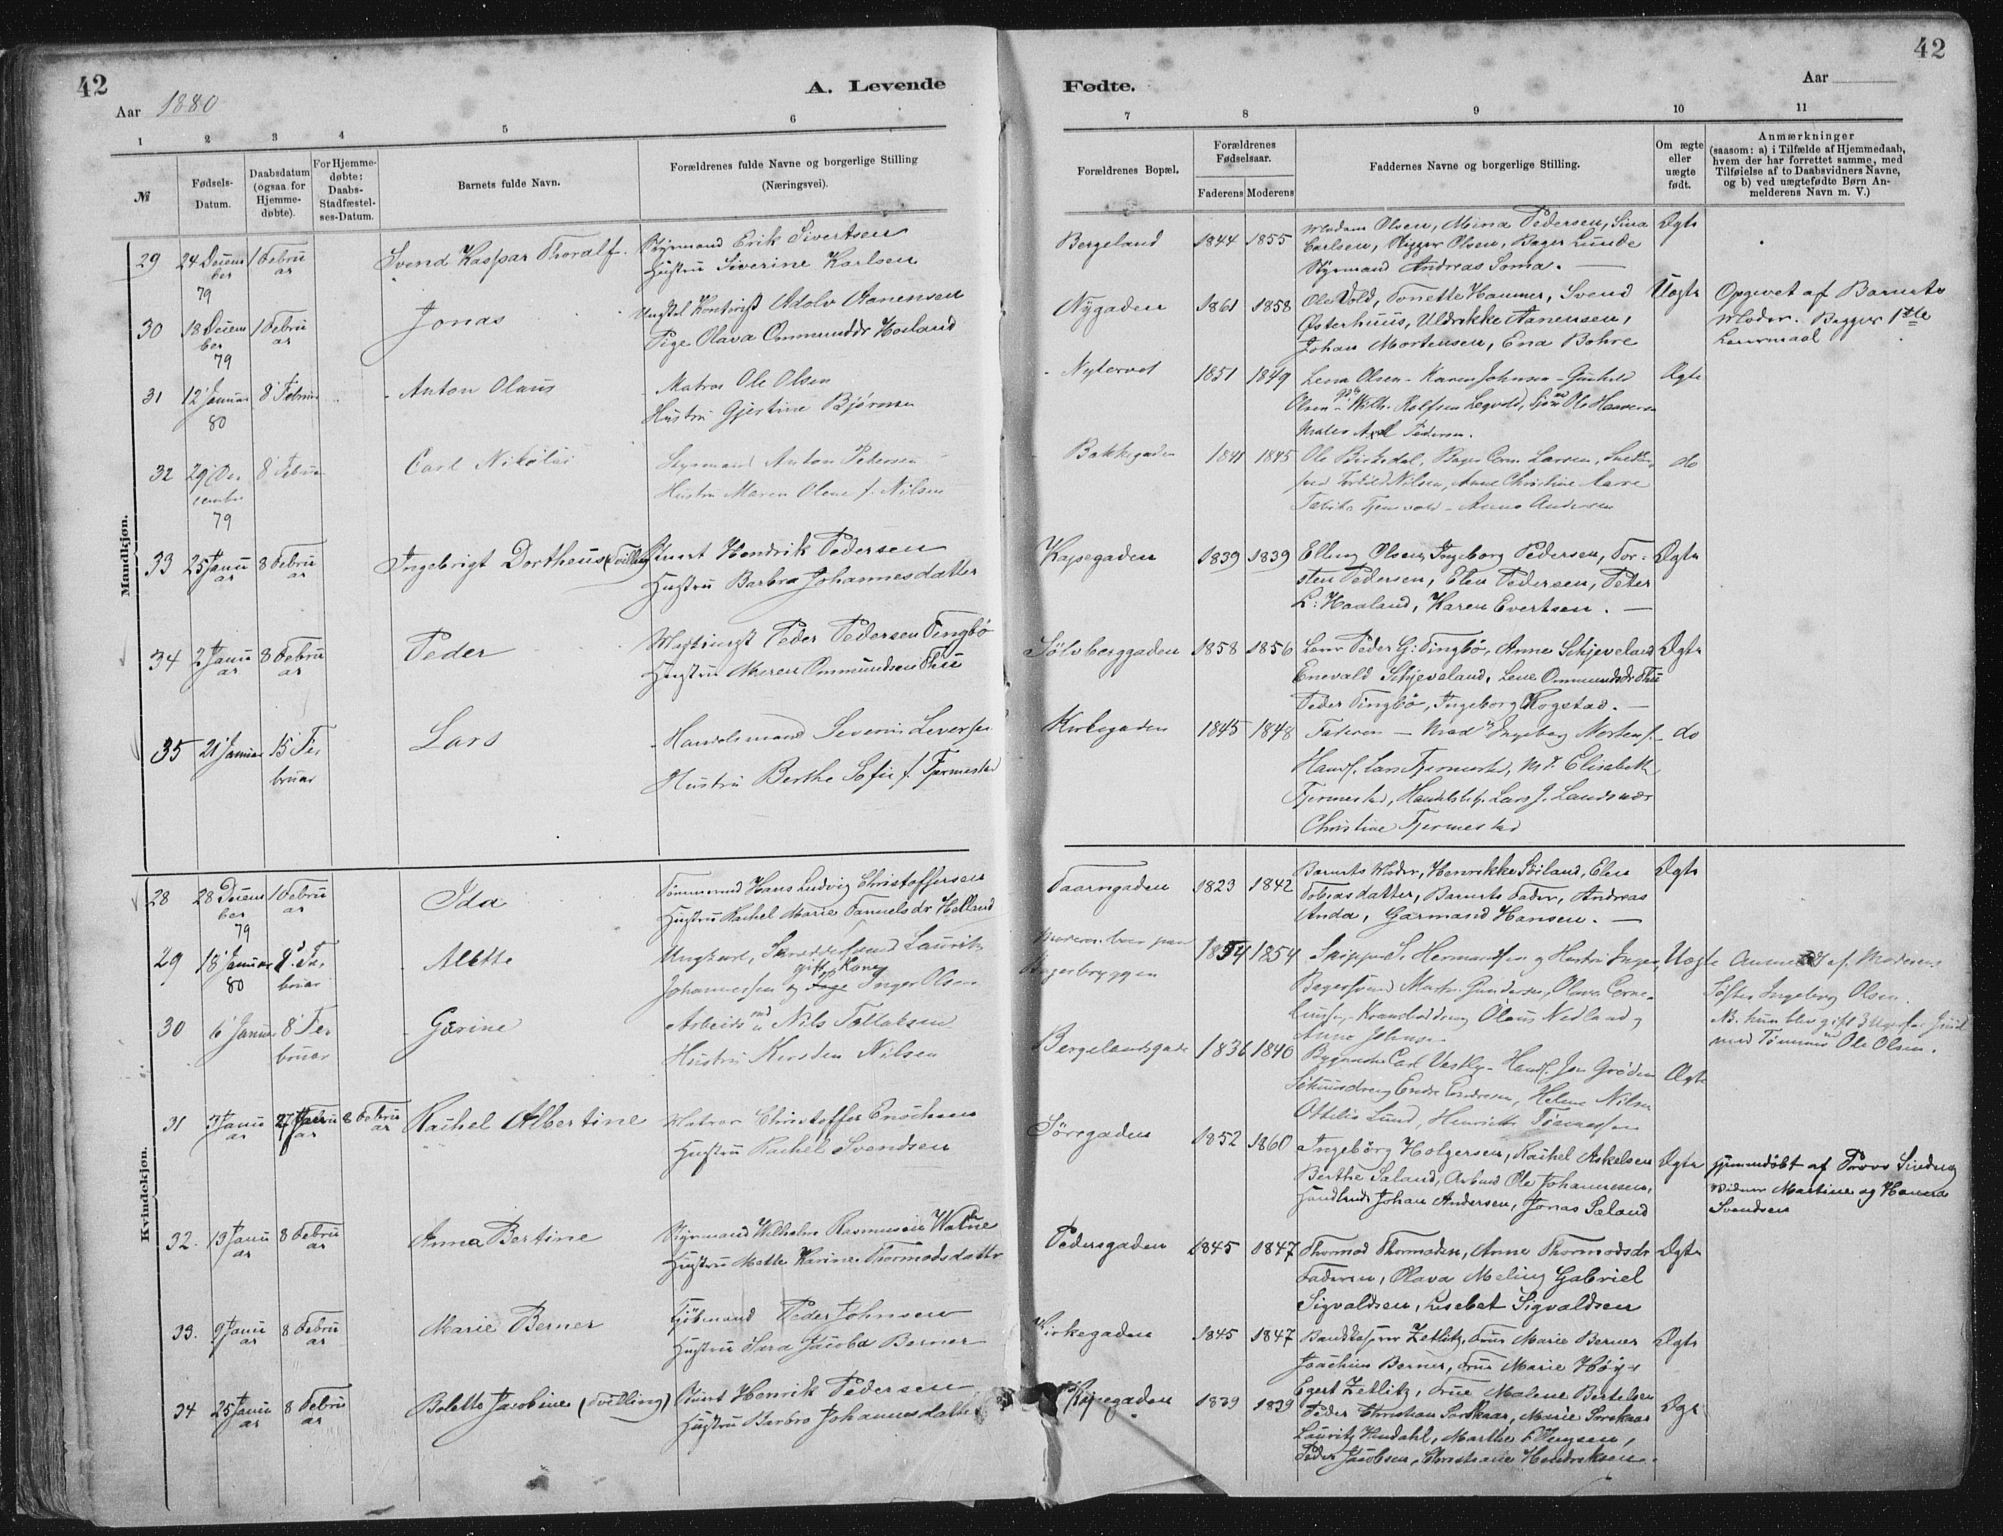 42
42
Aar 1880
A. Levende
Fødte.
Aar
1
2
3
4
5
6
7
8
9
10
11
№
Fødsels-Datum.
Daabsdatum (ogsaa for Hjemme-døbte).
For Hjemme-døbte: Daabs-Stadfæstel-ses-Datum.
Barnets fulde Navn.
Forældrenes fulde Navne og borgerlige Stilling (Næringsvei).
Forældrenes Bopæl.
Forældrenes Fødselsaar.
Faderens
Moderens
Faddernes Navne og borgerlige Stilling.
Om ægte eller uægte født.
Anmærkninger
(saasom: a) i Tilfælde af Hjemmedaab,
hvem der har forrettet samme, med
Tilføielse af to Daabsvidners Navne,
og b) ved uægtefødte Børn An-
melderens Navn m. V.)
Mandkjøn.
29 24 Decem 1 Febru Svend Kaspar Thoralf. Styrmand Erik Sivertsen Bergeland 1844 1855 Madam Olsen, Mina Pedersen, Sina Ægte
ber ar Hustru Siverine Karlsen Carlsen, Rigger Olsen, Bager Lunde
79 Styrmand Andreas Soma.
30 18 Decem 1 Febru Jonas Ungkl Kontorist Adolv Aanensen Nygaden 1861 1858 Ole Vold, Tonette Hammer, Svend Uægte Opgivet af Barnets
ber ar Pige Olava Ommundsdr Hosland Østerhuus, Uldrikke Aanensen, Moder. Begges 1ste
79 Johan Mortensen, Ena Bohre Leiermaal
31 12 Januar 8 Februar Anton Olaus Matros Ole Olsen Nytorvet 1851 1849 Lena Olsen - Karen Johnsen - Gunhild Ægte
80 Hustru Gjertine Bjørnsen Olsen
Pedersen.
32 29 De 8 Februar Carl Nikolai Styrmand Anton Pedersen Bakkegaden 1841 1845 Ole Birkedal, Bager Corn. Larsen, do
cember Hustru Maren Olene f. Nilsen Nilsen, Anne Christine Aare
79 Anna Andersen
33 25 Janu 8 Febru Ingebrigt Dortheus (Tvilling) Hendrik Pedersen Kapegaden 1839 1839 Elling Olsen, Ingeborg Pedersen, Tor- Ægte
ar ar Hustru Barbra Johannesdatter sten Pedersen, Elen Pedersen, Peter
L. Haaland, Karen Evertsen.
34 2 Janu 8 Febru Peder Peder Pedersen Tingbø Sølvberggaden 1858 1856 Peder G. Tingbø, Anne Skjeveland Ægte
ar ar Hustru Maren Ommundsen Thu Enevald Skjeveland, Lene Ommundsdr Thu
Peder Tingbø, Ingeborg Rogstad.
35 21 Januar 15 Fe Lars Handelsmand Severin Seversen Kirkegaden 1845 1848 Faderen - Mad. Ingeborg Mortens. do
bruar Hustru Berthe Sofie f. Fjermestad Hand. Lars Fjermestad, Md. Elisabeth
Fjermestad, Handelsbetj. Lars J. Landsnæs
Christine Fjermestad
Kvindekjøn.
28 28 Decem 1 Febru Ida Tømmermd Hans Ludvig Christoffersen Taarngaden 1823 1842 Barnets Moder, Henrikke Søiland, Elen Ægte
ber ar Hustru Rachel Marie Samuelsdr Helland Tobiasdatter, Barnets Fader, Andreas
79 Anda, Garmand Hansen.
29 18 Januar 8d Fe Alette Ungkarl, Skreddersvend Laurits 1854 1854 Skipper S. Hermansen og Hustru Inger, Uægte Anmeldt af Moderens
80 bruar gift Kone Bagersvend Gundersen, Olava Corne- Søster Ingeborg Olsen.
Johannessen og Pige Inger Olsen Olaus Nedland og
Anne Johnsen
Nb. hun blev gift 3 Uger før Juul
med Tømmermd Ole Olsen.
30 6 Januar 8 Fe Garine Arbeidsmd Nils Tollaksen Bergelandsgade 1836 1840 Carl Vestly - Hand. Jon Grøden Ægte
bruar Hustru Kirsten Nilsen Endre Endresen, Helene Nilsen
Ottilia Lund, Henriette Tønnessen
31 3 Janu 27 Janu 8 Febru Rachel Albertine Matros Christoffer Enochsen Søregaden 1852 1860 Ingebørg Holgersen, Rachel Askelsen Ægte Hjemmedøbt af Provs Sinding
ar ar ar Hustru Rachel Svendsen Berthe Saland, Arbmd Ole Johannesen, Vidner Martine og Hanna
Johan Andersen, Jonas Saland Svendsen
32. 13 Janu 8 Febru Anna Bertine Styrmand Wilhelm Rasmussen Watne Pedersgaden 1845 1847 Thormod Thormodsen, Anne Thormodsdr Ægte
ar ar Hustru Mette Karine Thormodsdattr Faderen, Olava Meling Gabriel
Sigvaldsen, Lisebet Sigvaldsen
33. 9 Janu 8 Febru Marie Berner Kjøbmand Peder Johnsen Kirkegaden 1845 1847 Zetlitz, Frue Marie Berner Ægte
ar ar Hustru Sara Jacoba Berner Joachim Berner, Frue Marie Høyer
Egert Zetlitz, Frue Malene Bertelsen
34 25 Janu 8 Febru Bolette Jacobine (Tvilling) Henrik Pedersen Kapegaden 1839 1839 Peder Christian Sørskaar, Marie Sørskaar Ægte
ar ar Hustru Barbro Johannesdatter Lauritz Hindahl, Marthe
Peder Jacobsen, Christiane Hendriksen.